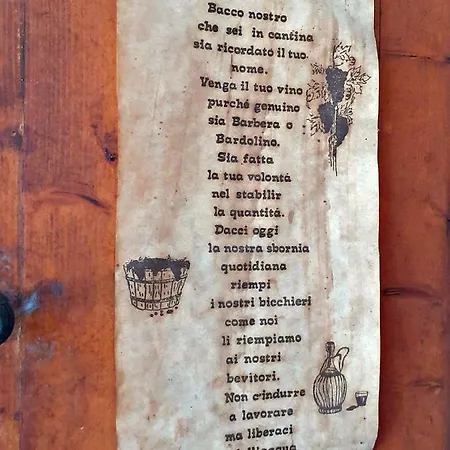 Bacco nostro
che sei in cantina
sia ricordato il tuo
nome.
Venga il tuo vino
purché genuino
sia Barbera o
Bardolino.
Sia fatta
la tua volontá
nel stabilir
la quantitá.
Dacci oggi
la nostra sbornia
quotidiana
riempi
i nostri bicchieri
come noi
li riempiamo
ai nostri
bevitori.
Non c'indurre
a lavorare
ma liberaci